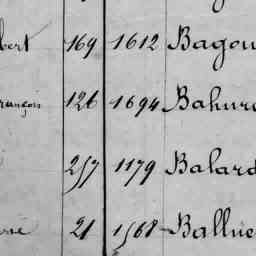 bert 169 1612 Bagou
rançois 126 1694 Bahur
257 1179 Balard
21 1568 Ballue